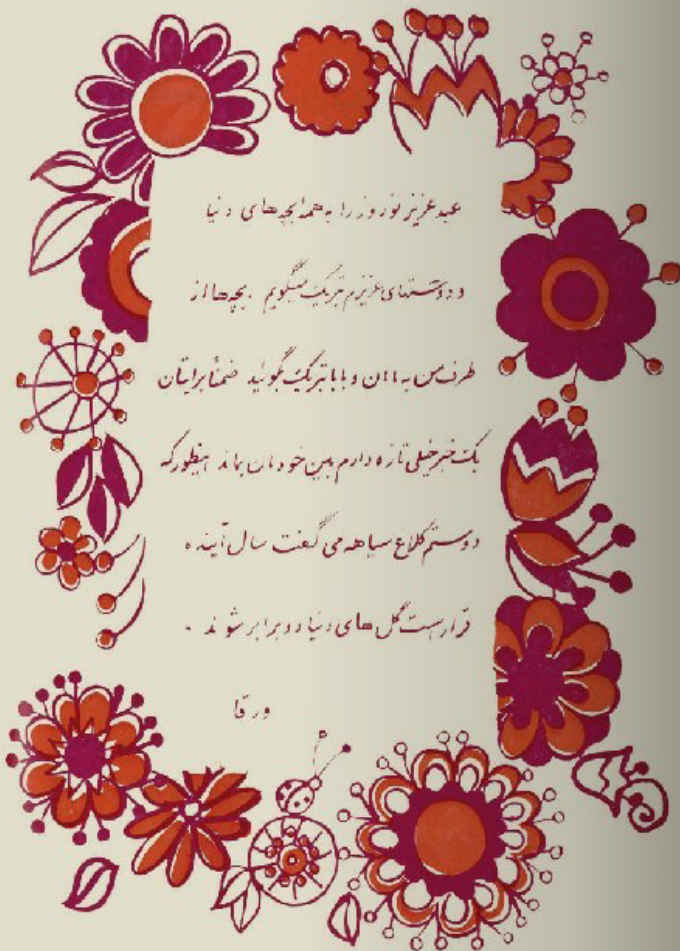 عید عزیز نوروز را به همه بچه های دنیا
و دوستهای عزیزم تبریک میگویم . بچه ها از
طرف من به مامان و بابا تبریک بگوئید ضمناً برایتان
یک خبر خیلی تازه دارم بین خودمان بماند اینطور که
دوستم کلاغ سیاهه می گفت سال آینده
قرار است گل های دنیا دو برابر شوند .
ورقا